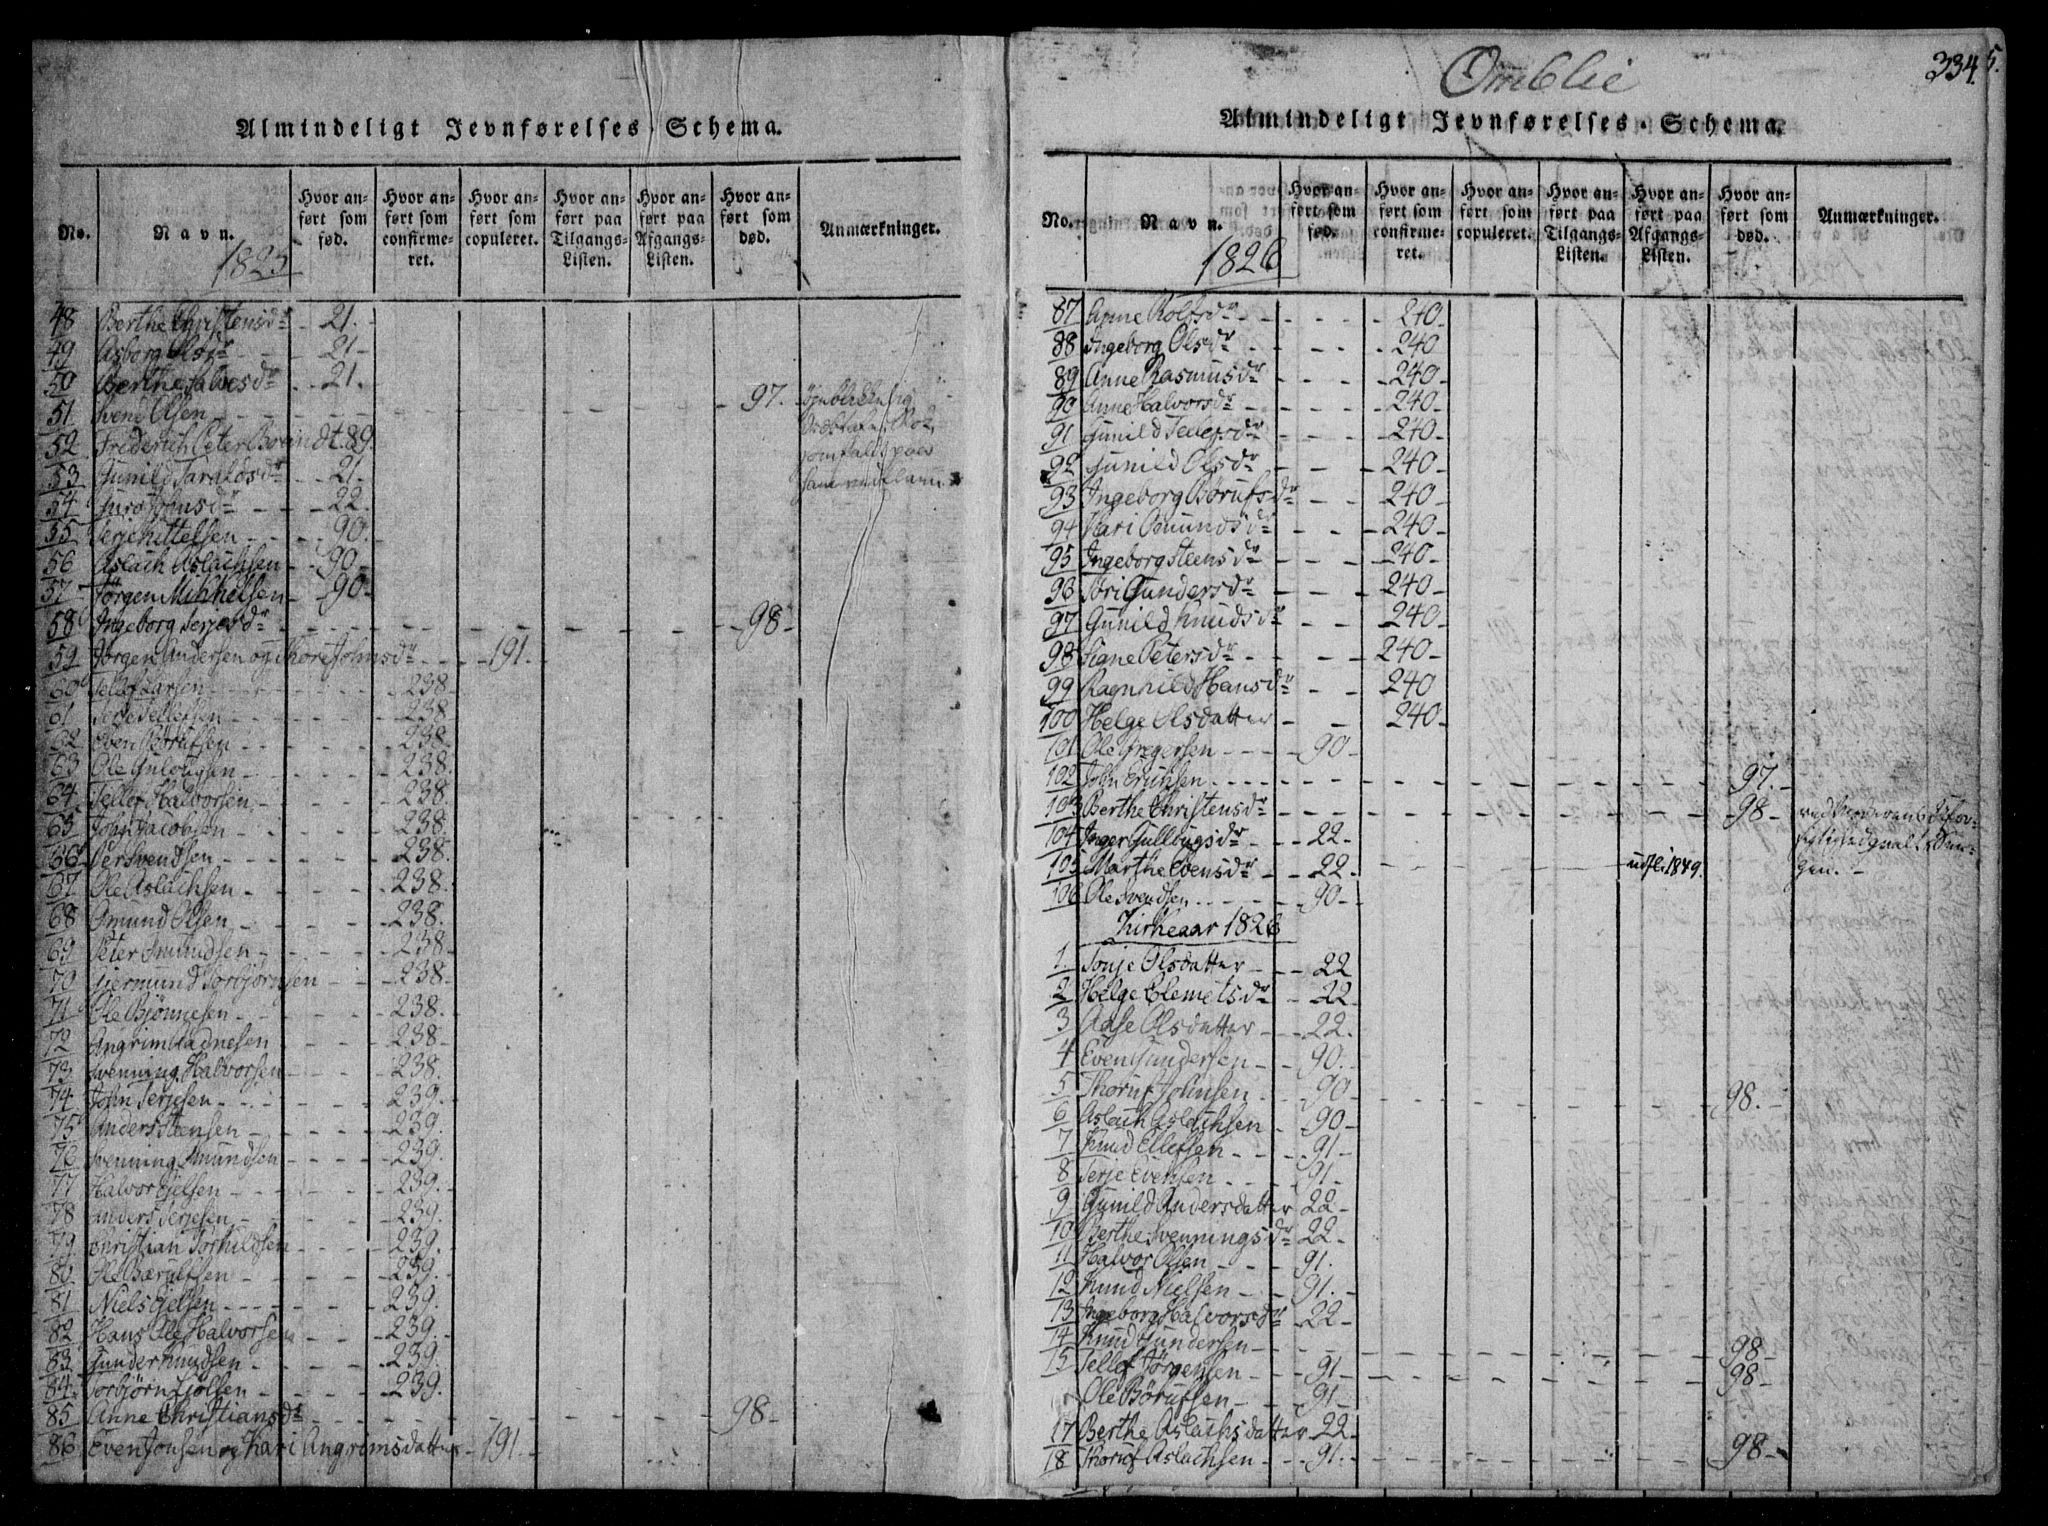 Almindeligt Jevnførelses-Schema.
No. Navn. Hvor anført som fød. Hvor anført som confirmeret. Hvor anført som copuleret. Hvor anført paa Tilgangs-Listen. Hvor anført paa Afgangs-Listen. Hvor anført som død. Anmærkninger.
1825
48 Berthe Christensdr 21.
49 Asborg Olsdr 21
50 Berthe Halvorsdr 21.
51 Svend Olsen 97.
52 Frederich Peter Brandt 89.
53 Gunild Taraldsdr 21.
54 Guro Johnsdr 22.
55 Terje Kittelsen 90.
56 Aslach Aslachsen 90
57 Jörgen Mikkelsen 90
58 Ingeborg Terjesdr 98
59 Jörgen Andersen og Thore Johnsdr 191.
60 Tellef Larsen 238
61 Terje Tellefsen 238
62 Even Börufsen 238.
63 Ole Gulougsen 238.
64 Tellef Halvorsen 238.
65 John Jacobsen 238.
66 Per Svendsen 238.
67 Ole Aslachsen 238.
68 Omund Olsen 238.
69 Peter Omundsen 238
70 Giermund Torbjörnsen 238
71 Ole Björnnesen 238.
72 Angrim Aadnesen 238
73 Svenning Halvorsen 238.
74 John Terjesen 239.
75 Anders Steensen 239.
76 Svenning Omundsen 239.
77 Halvor Gjelsen 239.
78 Anders Terjesen 239.
79 Christian Torkildsen 239.
80 Ole Bærulfsen 239.
81 Niels Gjelsen 239.
82 Hans Ole Halvorsen 239.
83 Gunder Knudsen 239.
84 Torbjörn Ejölsen 239.
85 Anne Christiansdr 98
86 Even Jonsen og Kari Angrimsdatter 191
Omblie
334 5.
Almindeligt Jevnførelses-Schema.
No. Navn. Hvor anført som fød. Hvor anført som confirmeret. Hvor anført som copuleret. Hvor anført paa Tilgangs-Listen. Hvor anført paa Afgangs-Listen. Hvor anført som død. Anmærkninger.
1826
87 Anne Rolfsdr 240
88 Ingeborg Olsdr 240
89 Anne Rasmusdr 240
90 Anne Halvorsdr 240
91 Gunild Tellefsdr 240
92 Gunild Olsdr 240
93 Ingeborg Börufsdr 240
94 Kari Omundsdr 240
95 Ingeborg Steensdr 240
96 Siri Gundersdr 240
97 Gunild Knudsdr 240
98 Signe Petersdr 240
99 Ragnhild Hansdr 240
100 Helge Olsdatter 240
101 Ole Gregersen 90
102 John Erichsen 97.
103 Berthe Christensdr 98
104 Inger Gullougsdr 22.
105 Marthe Evensdr 22. udfl. i 1849.
gen.
106 Ole Svendsen 90
Kirkeaar 1826
1. Tonje Olsdatter 22
2 Helge Clemetsdr 22
3 Aase Olsdatter 22.
4 Even Gundersen 90.
5 Thoruf Johnsen 90 98.
6 Aslach Aslachsen 90
7 Knud Ellefsen 91
8 Terje Evensen 91
9 Gunild Andersdatter 22
10 Berthe Svenningsdr 22
11 Halvor Olsen 91.
12 Knud Nielsen 91.
13 Ingeborg Halvorsdr 22
14 Knud Gundersen 98
15 Tellef Jörgensen 91 98
Ole Börufsen 91
17 Berthe Aslachsdatter 22
18 Thoruf Aslachsen 91. 98